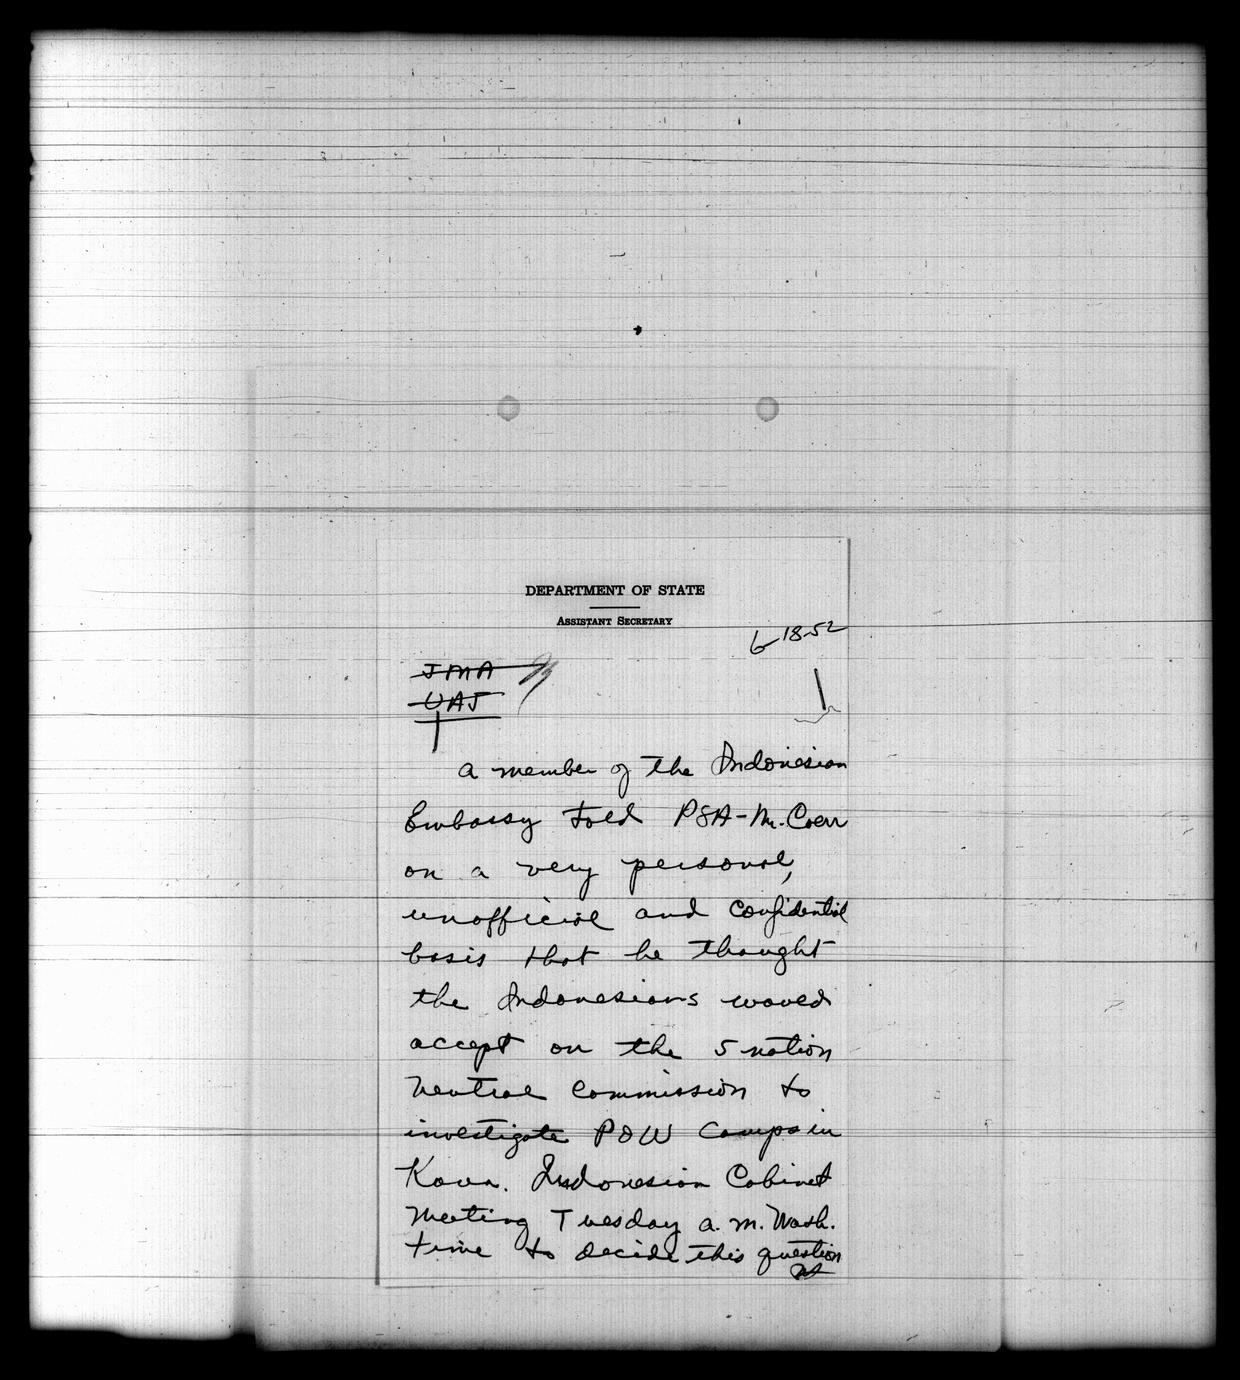 DEPARTMENT OF STATE
ASSISTANT SECRETARY
6-18-52
JMA
UAJ
a member of the Indonesian
Embassy told PSA-Mr. Coerr
on a very personal,
unofficial and confidential
basis that he thought
the Indonesians would
accept on the 5 nation
neutral commission to
investigate POW Camps in
Korea. Indonesian Cabinet
meeting Tuesday a.m. Wash.
time to decide this question